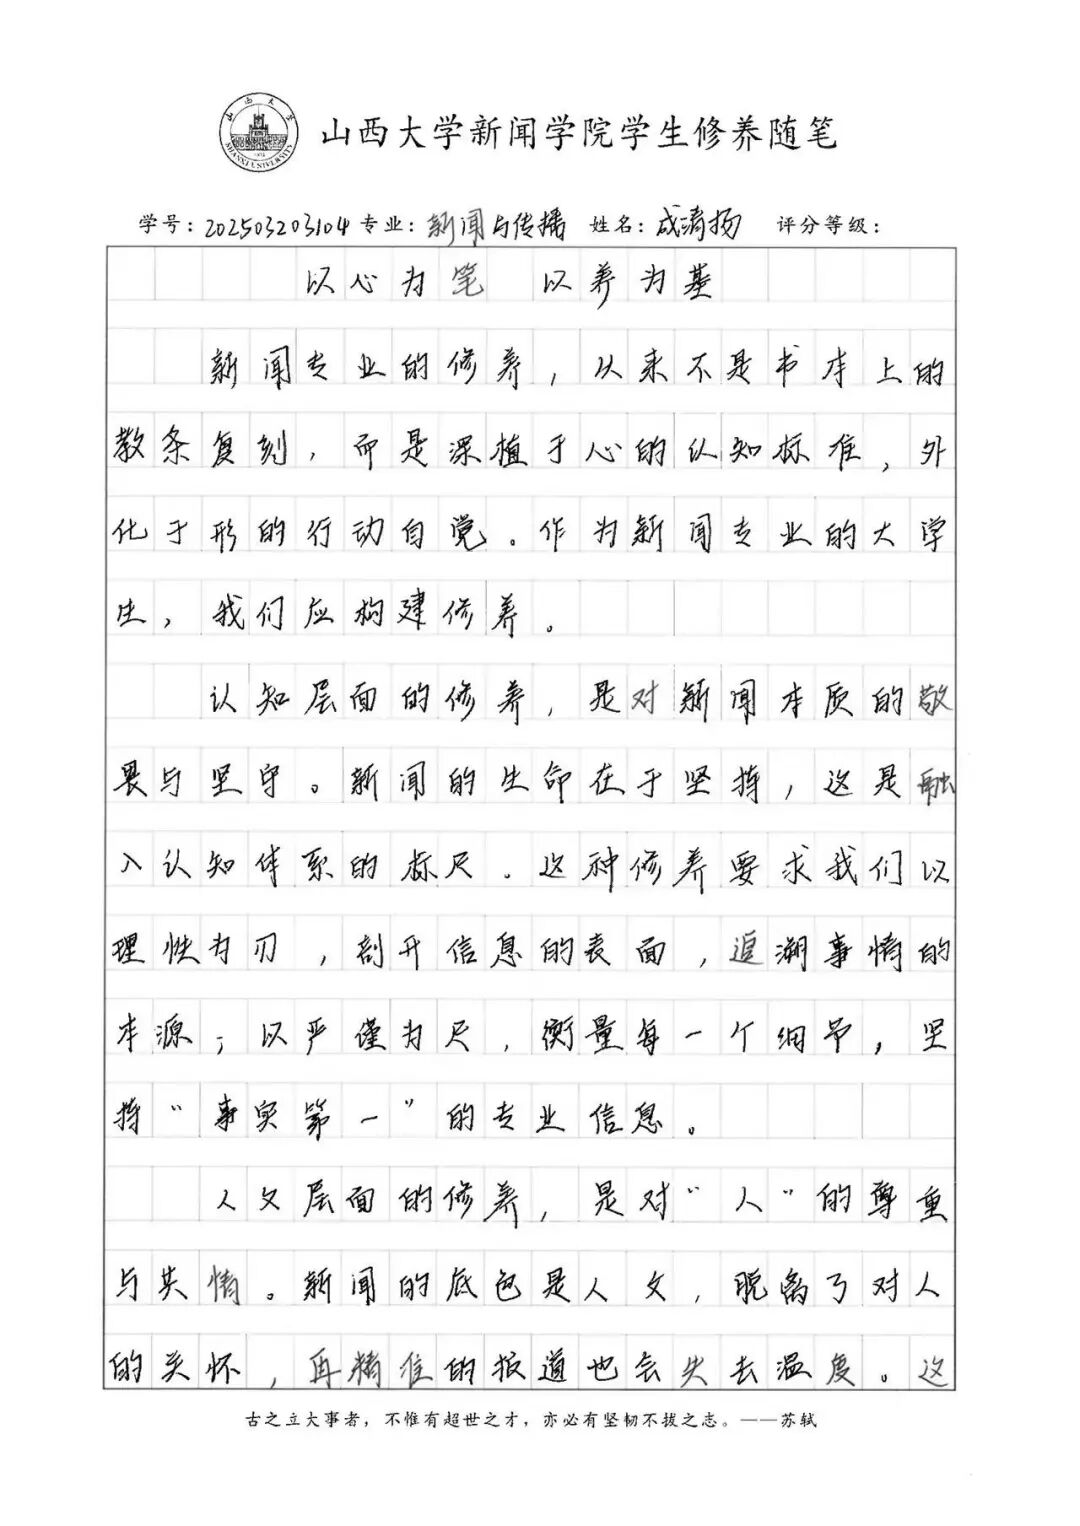 山西大学
SHANXI UNIVERSITY
山西大学新闻学院学生修养随笔
学号：202503203104 专业：新闻与传播 姓名：成清扬 评分等级：
以心为笔 以养为基
新闻专业的修养，从来不是书本上的
教条复刻，而是深植于心的认知标准，外
化于形的行动自觉。作为新闻专业的大学
生，我们应构建修养。
认知层面的修养，是对新闻本质的敬
畏与坚守。新闻的生命在于坚持，这是融
入认知体系的标尺．这种修养要求我们以
理性为刃，剖开信息的表面，追溯事情的
本源；以严谨为尺，衡量每一个细节，坚
持“事实第一”的专业信息。
人文层面的修养，是对“人”的尊重
与共情。新闻的底色是人文，脱离了对人
的关怀，再精准的报道也会失去温度。这
古之立大事者，不惟有超世之才，亦必有坚韧不拔之志。——苏轼